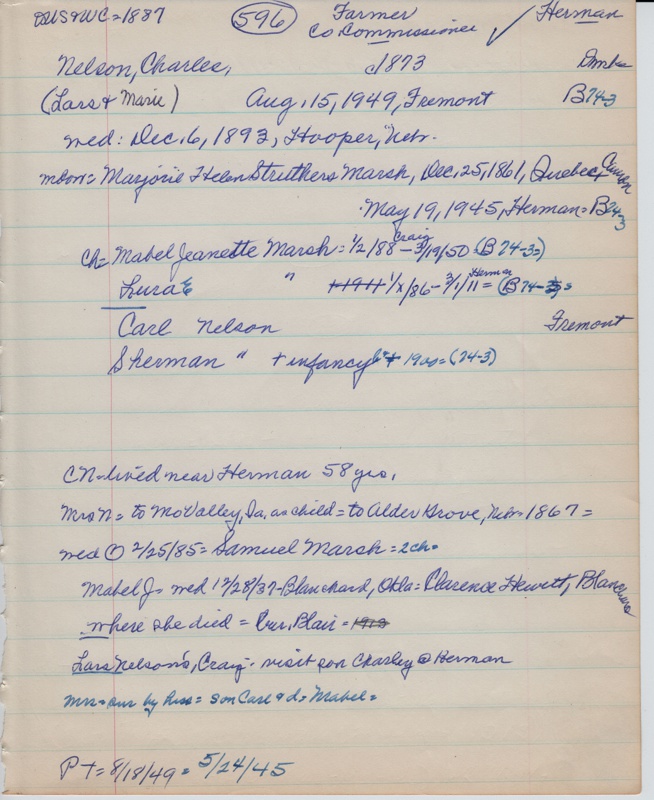 OUS & WC = 1887 (596) Farmer ✓ Herman
Co Commissioner
Nelson, Charles, c1873 Dmk
(Lars + Marie) Aug. 15, 1949, Fremont B74-3
med: Dec. 6, 1893, Hooper, Nebr.
Marjorie Helen Struthers Marsh, Dec. 25, 1861, Quebec, Can
May 19, 1945, Herman = B74-3
Ch = Mabel Jeanette Marsh = 1/2/88 - Craig 3/19/50 = (B 74-3 =)
Lura E " 1/x/86 - 3/1/11 = Herman (B 74-3 =
Carl Nelson Fremont
Sherman " + infancy 1900 = (74-3)
CN = lived near Herman 58 yrs.
Mrs N = to Mo Valley, Ia. as child = to Alder Grove, Nebr = 1867 =
med ① 2/25/85 = Samuel Marsh = 2 ch =
Mabel J = med 12/28/37 - Blanchard, Okla = Clarence Hewitt, Blanchard
where she died = bur. Blair = 1913
Lars Nelson's, Craig - visit son Charley @ Herman
Mrs = sur by hus = son Carl & d = Mabel =
PT = 8/18/49 = 5/24/45